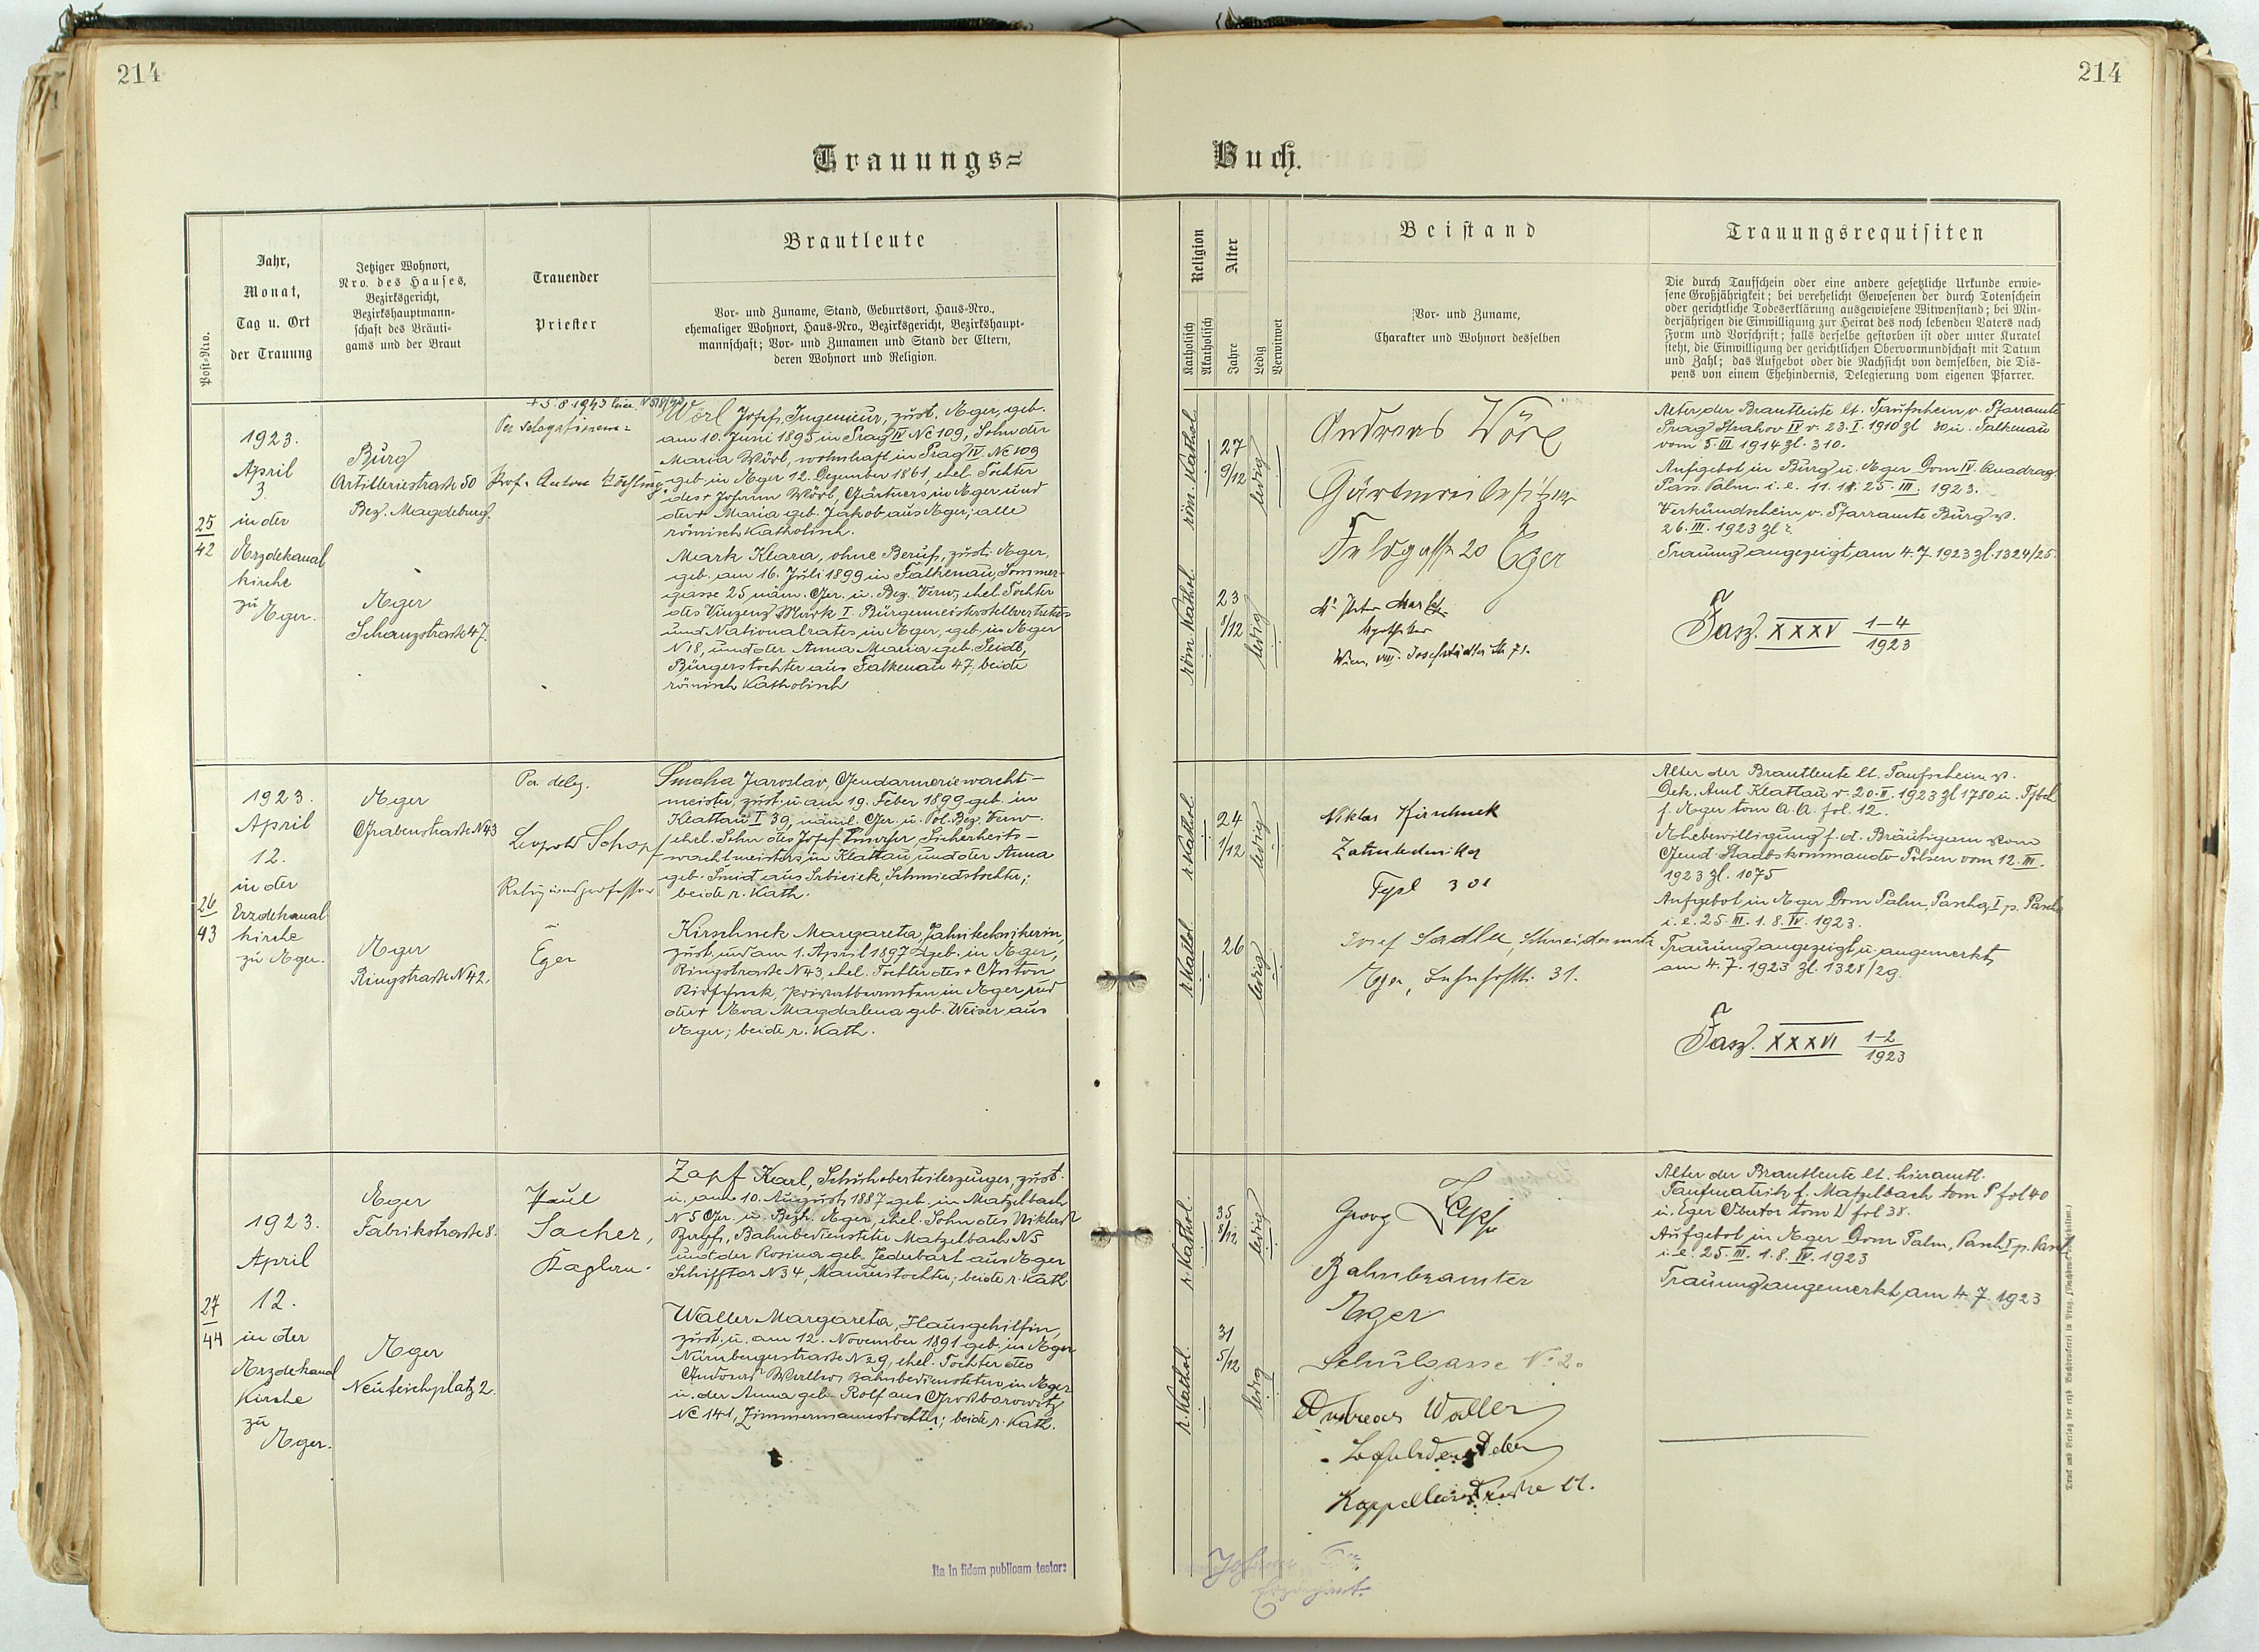 214
214
Trauungs=
Buch.
Post-Nro.
Jahr,
Monat,
Tag u. Ort
der Trauung
Jetziger Wohnort,
Nro. des Hauses,
Bezirksgericht,
Bezirkshauptmann-
schaft des Bräuti-
gams und der Braut
Trauender
Priester
Brautleute
Vor- und Zuname, Stand, Geburtsort, Haus-Nro.,
ehemaliger Wohnort, Haus-Nro., Bezirksgericht, Bezirkshaupt-
mannschaft; Vor- und Zunamen und Stand der Eltern,
deren Wohnort und Religion.
Religion
Katholisch
Akatholisch
Alter
Jahre
Ledig
Verwitwet
Beistand
Vor- und Zuname,
Charakter und Wohnort desselben
Trauungsrequisiten
Die durch Taufschein oder eine andere gesetzliche Urkunde erwie-
sene Großjährigkeit; bei verehelicht Gewesenen der durch Totenschein
oder gerichtliche Todeserklärung ausgewiesene Witwenstand; bei Min-
derjährigen die Einwilligung zur Heirat des noch lebenden Vaters nach
Form und Vorschrift; falls derselbe gestorben ist oder unter Kuratel
steht, die Einwilligung der gerichtlichen Obervormundschaft mit Datum
und Zahl; das Aufgebot oder die Nachsicht von demselben, die Dis-
pens von einem Ehehindernis, Delegierung vom eigenen Pfarrer.
25
42
1923.
April
3.
in der
Erzdekanal
kirche
zu
Eger.
Burg
Artilleriestraße 50
Bez. Magdeburg.
Eger
Schanzstraße 47.
+ 5.8.1943
Per delegationem:
Prof. Anton
Wörl Josef, Ingenieur, zust. Eger, geb.
am 10. Juni 1895 in Prag IV Nc 109, Sohn der
Maria Wörl, wohnhaft in Prag IV. Nc 109
geb. in Eger 12. Dezember 1861, ehel. Tochter
des + Johann Wörl, Gärtners in Eger und
der + Maria geb. Jakob aus Eger; alle
römisch katholisch.
Mark Klara, ohne Beruf, zust. Eger,
geb. am 16. Juli 1899 in Falkenau, Sommer-
gasse 25 näm. Ger. u. Bez. Verw., ehel. Tochter
des Vinzenz Mark I. Bürgermeisterstellvertreters
und Nationalrates in Eger, geb. in Eger
N 18, und der Anna Maria geb. Seidl,
Bürgerstochter aus Falkenau 47, beide
römisch katholisch
röm. kathol.
27
9/12
ledig
röm. kathol.
23
8/12
ledig
Andreas Wörl
Gärtnereibesitzer
Feldgasse 20 Eger
Mr. Peter Mark
Apotheker
Wien, VIII. Josefstädter Str 71.
Alter der Brautleute lt. Taufschein v. Pfarramte
Prag Strahov IV v. 23. I. 1910 zl 30 u. Falkenau
vom 5. III. 1914 zl. 310.
Aufgebot in Burg u. Eger Dom IV. Quadrag.
Pass. Palm. i. e. 11. 18. 25. III. 1923.
Verkündschein v. Pfarramte Burg v.
26. III. 1923 zl
Trauung angezeigt am 4.7.1923 zl. 1324/25.
Fasz. XXXV 1-4
1923
26
43
1923.
April
12.
in der
Erzdekanal-
kirche
zu Eger.
Eger
Grabenstraße N 43
Eger
Ringstraße N 42.
Per deleg.
Leopold Schopf
Religionsprofessor
in
Eger
Smaha Jaroslav, Gendarmeriewacht-
meister, zust. u. am 19. Feber 1899 geb. in
Klattau I 39, näml. Ger. u. Pol. Bez. Verw.
ehel. Sohn des Josef Smaha, Sicherheits-
wachtmeisters in Klattau und der Anna
geb. Smid aus Srbicich, Schmiedstochter;
beide r. kath.
Kirschnek Margareta, Zahntechnikerin,
zust. und am 1. April 1897 geb. in Eger,
Ringstraße N 43, ehel. Tochter des + Anton
Kirschnek, Privatbeamten in Eger und
der + Eva Magdalena geb. Weiser aus
Eger; beide r. kath.
r. kathol.
24
1/12
ledig
r. kathol.
26
ledig
Niklas Kirschnek
Zahntechniker
Tepl 301
Josef Sadla, Schneidermstr.
Eger, Bahnhofstr. 31.
Alter der Brautleute lt. Taufschein v.
Dek. Amt Klattau v. 20. II. 1923 zl 1780 u. Tfbch
f. Eger tom A.A. fol. 12.
Ehebewilligung f. d. Bräutigam vom
Gend. Stabskommando Pilsen vom 12. III.
1923 zl. 1075
Aufgebot in Eger Dom Palm, Pascha, I p. Pascha
i. e. 25. III. 1. 8. IV. 1923.
Trauung angezeigt u. angemerkt
am 4.7.1923 zl. 1328/29.
Fasz. XXXVI 1-2
1923
27
44
1923.
April
12.
in der
Erzdekanal
Kirche
zu
Eger.
Eger
Fabrikstraße 8.
Eger
Neuteichplatz 2.
Paul
Sacher,
Kaplan.
Zapf Karl, Schuhoberteilerzeuger, zust.
u. am 10. August 1887 geb. in Matzelbach
N 5 Ger. u. Bezh. Eger, ehel. Sohn des Niklas
Zapf, Bahnbediensteter Matzelbach N 5
und der Rosina geb. Federbart aus Eger
Schifftor N 34, Maurerstochter; beide r. kath.
Waller Margareta, Hausgehilfin,
zust. u. am 12. November 1891 geb. in Eger
Nürnbergerstraße N 29, ehel. Tochter des
Andreas Waller, Bahnbediensteten in Eger
u. der Anna geb. Rolf aus
Nc 141, Zimmermannstochter; beide r. kath.
r. kathol.
35
8/12
ledig
r. kathol.
31
5/12
ledig
Georg Zapf
Bahnbeamter
Eger
Schulgasse N. 2.
Andreas Waller
11.
Alter der Brautleute lt. hieramtl.
Taufmatrik f. Matzelbach tom P fol 40
u. Eger Obertor tom V fol 38.
Aufgebot in Eger Dom Palm, Pasch, I p. Pasch
i. e. 25. III. 1. 8. IV. 1923
Trauung angemerkt am 4.7.1923
Ita in fidem publicam testor:
Johann
Erzdechant.
Druck und Verlag der erzb. Buchdruckerei in Prag.